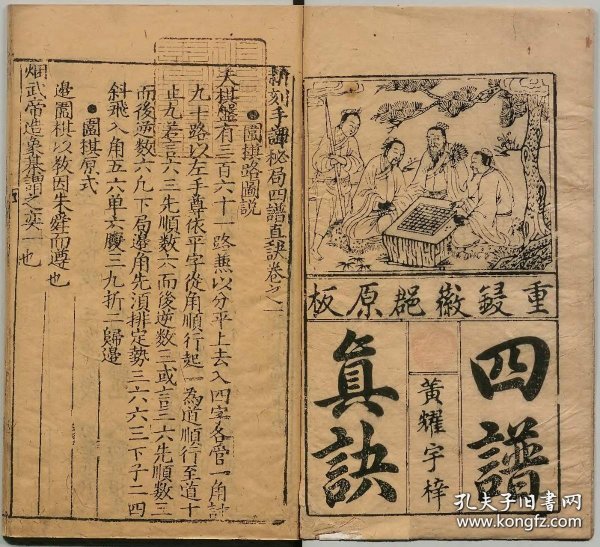 重鋟徽郡原板
四譜
黃耀宇梓
眞訣
新刻手譚秘局四譜直訣卷之一
圍棋路圖説
夫棋盤有三百六十一路無以分平上去入四字各管一角計
九十路以左手尊依平字從角順行起一為道順行至道十
止九差言六三先順數六而後逆數三或言三六先順數三
而後逆數六凡下局邊角先湏排定勢三六六三下子二四
斜飛入角五六單六慶三九折二歸邊
圍棋原式
邉圍棋以教因朱舜而遵也
武帝造象棋
之奕一也
孔夫子旧书网
www.kongfz.com